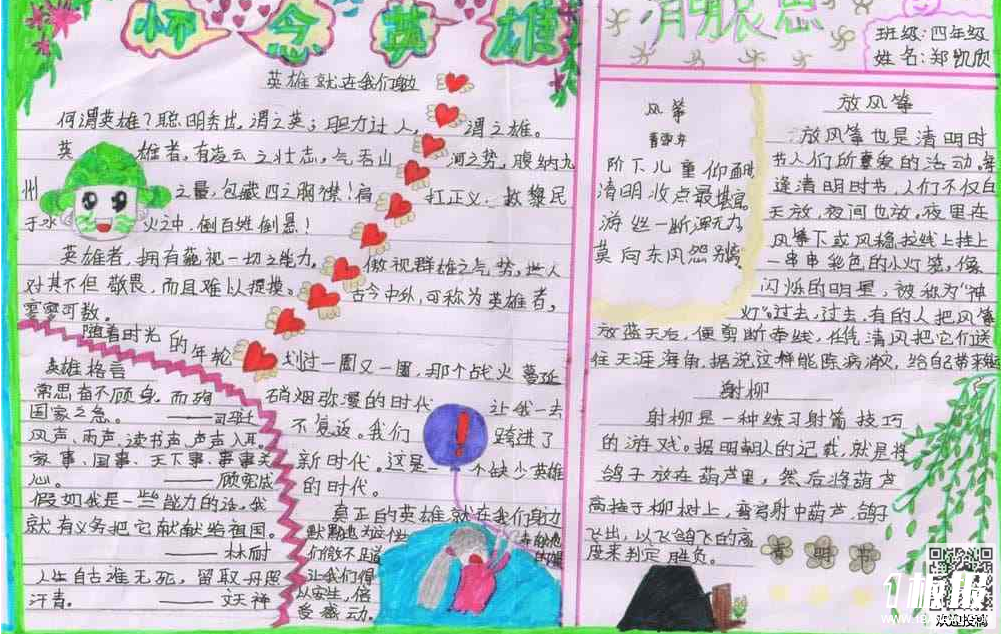 怀念英雄
英雄就在我们身边
何谓英雄？聪明秀出，谓之英；胆力过人，谓之雄。
英雄者，有凌云之壮志，气吞山河之势，腹纳九
州之量，包藏四之胸襟！肩扛正义，救黎民
于水火之中，倒百姓倒悬！
英雄者，拥有藐视一切之能力。傲视群雄之气势，世人
对其不但敬畏，而且难以提摸。古今中外，可称为英雄者，
寥寥可数。
随着时光的年轮划过一圈又一圈，那个战火蔓延
硝烟弥漫的时代让我一去
不复返。我们跨进了
新时代。这是一个缺少英雄
的时代。
真正的英雄就在我们身边
默默地为
们微不足道
让我们得
以安生，倍
受感动。
英雄格言
常思奋不顾身，而殉
国家之急。——司马迁
风声、雨声、读书声，声声入耳。
家事、国事、天下事，事事关
心。——顾宪成
假如我是一些能力的话，我
就有义务把它献献给祖国。
——林耐
人生自古谁无死，留取丹照
汗青。——文天祥
清明
思
班级：四年级
姓名：郑凯欣
风筝
阶下儿童仰面
清明收点最堪宜。
游丝一断浑无力，
莫向东风怨别
放风筝
放风筝也是清明时
节人们所喜爱的活动。每
逢清明时节，人们不仅白
天放，夜间也放。夜里在
风筝下或风稳拉线上挂上
一串串彩色的小灯笼，像
闪烁的明星，被称为“神
灯”。过去，过去，有的人把风筝
放蓝天后，便剪断牵线，任凭清风把它们送
往天涯海角，据说这样能除病消灾，给自己带来
射柳
射柳是一种练习射箭技巧
的游戏。据明朝人的记载，就是将
鸽子放在葫芦里，然后将葫芦
高挂于柳树上，弯弓射中葫芦，鸽子
飞出，以飞鸽飞的高
度来判定胜负。
清明节
欢迎投稿